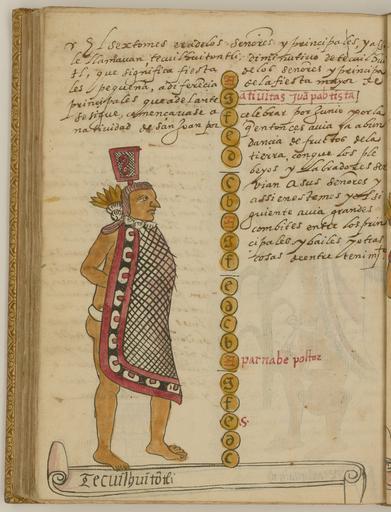 El sexto mes era de los señores y principales, y assi
le llamauan tecuilhuitontli diminutiuo de tecuilhui
tl, que significa fiesta de los señores y principa
les pequeña, a diferẽcia de la fiesta mayor de
principales que adelante
atiuitas Juā baptista
se sigue, comencaua se a celebrar por Junio por la
natiuidad de san Joan por q̃ entonces auia ya abun
dancia de fructos de la
tierra, con que los ple
beyos y labradores ser
uian a sus señores y
assi en este mes y
guiente auia grandes
combites entre los prin
cipales y bailes y otras
cosas de entretenim
g
f
e
d
c
b
g
f
e
d
c
b
barnabe
g
f
e
d
c
Tecuilhuitõtli